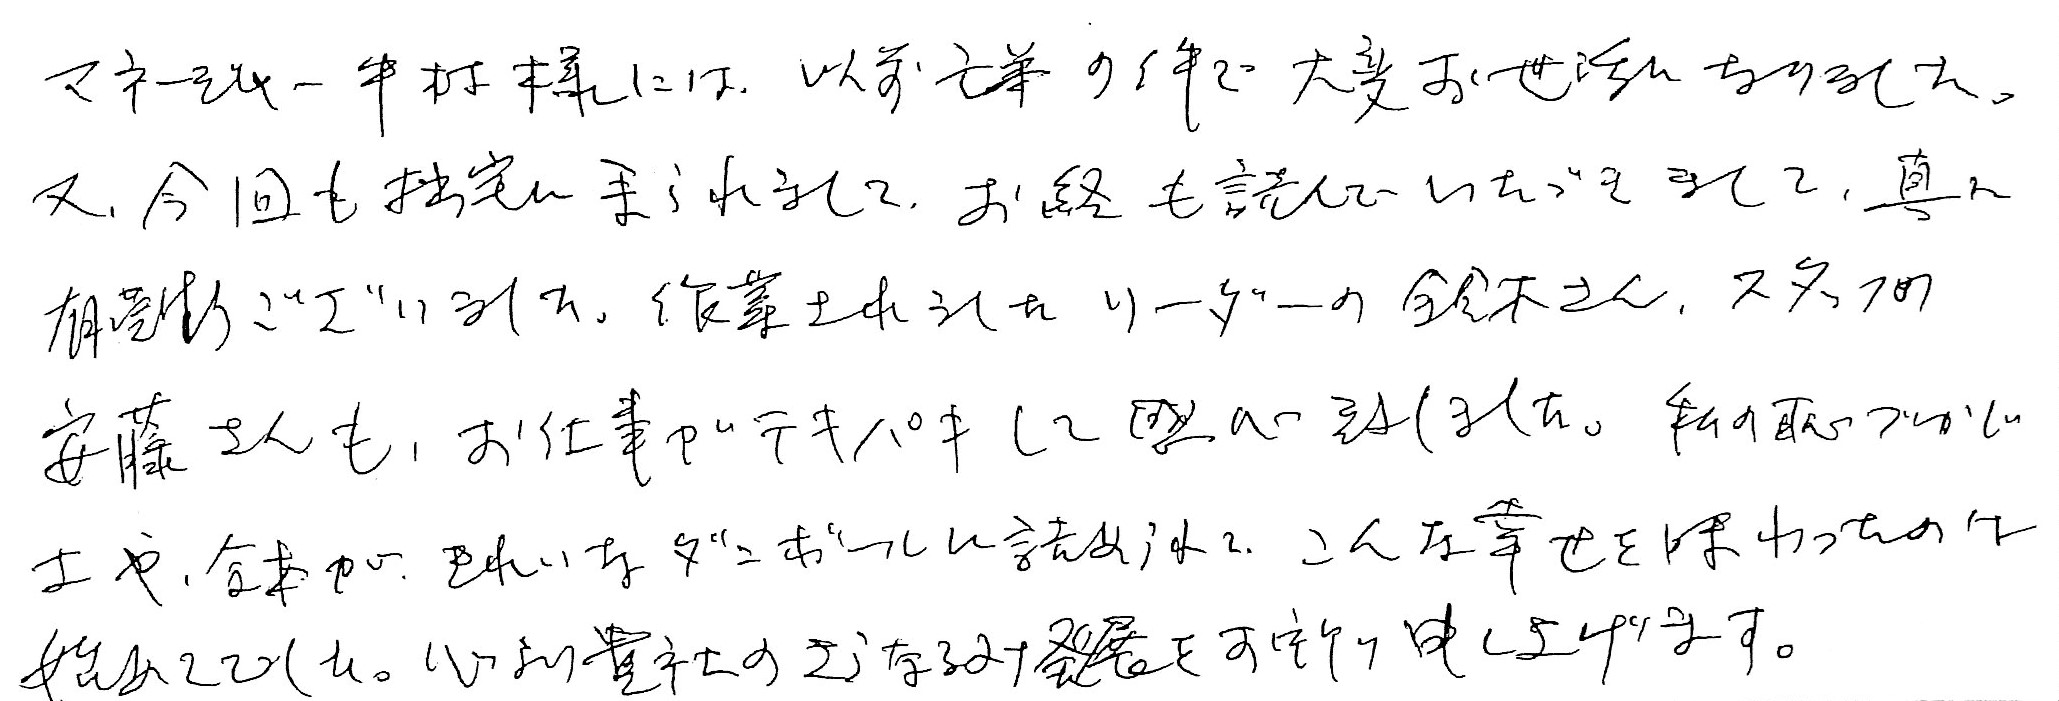 マネージャー中村様には、以前亡弟の件で大変お世話になりました。
又、今回も拙宅に来られまして、お経も読んでいただきまして、真に
有難うございました。作業されましたリーダーの鈴木さん、スタッフの
安藤さんも、お仕事がテキパキして感心致しました。私の
や、が、きれいなダンボールに詰められて、こんな幸せを味わったのは
始めてでした。心より貴社のさらなる御発展をお祈り申し上げます。